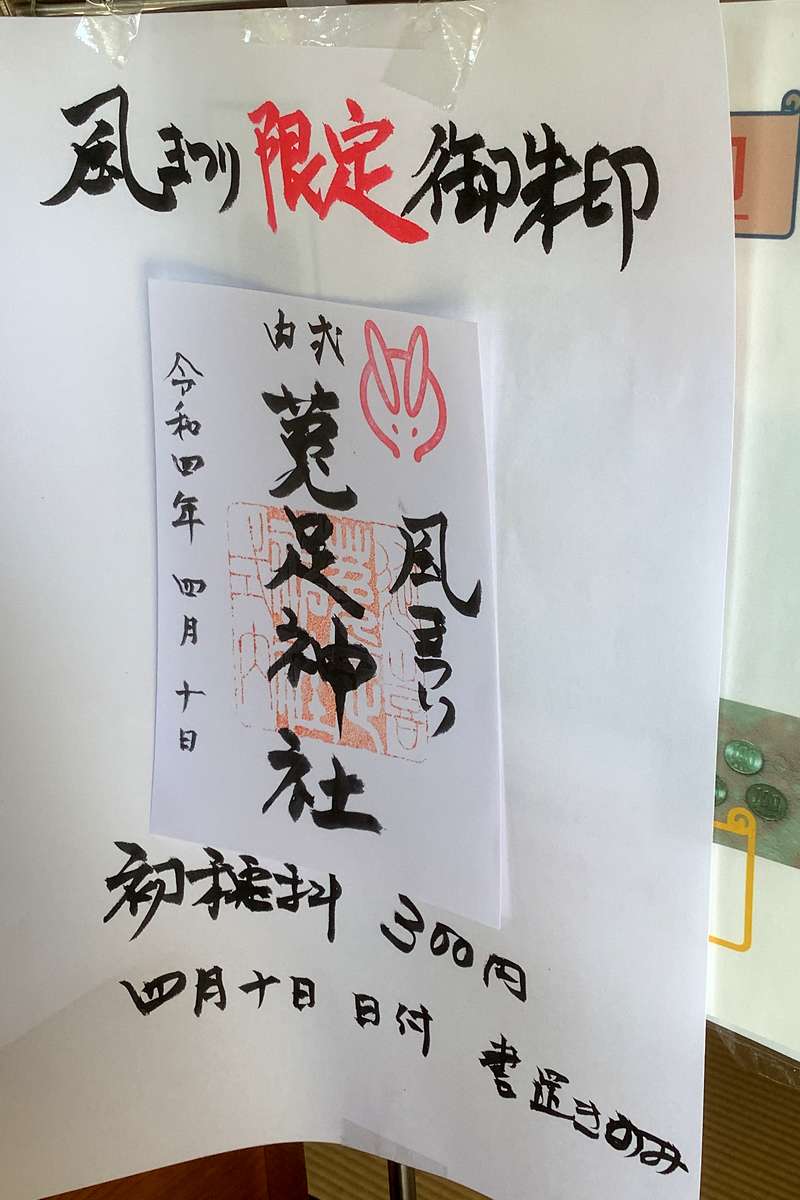 風まつり限定御朱印
風まつり
式内
菟足神社
令和四年 四月 十日
初穂料 300円
四月十日 日付 書置きのみ